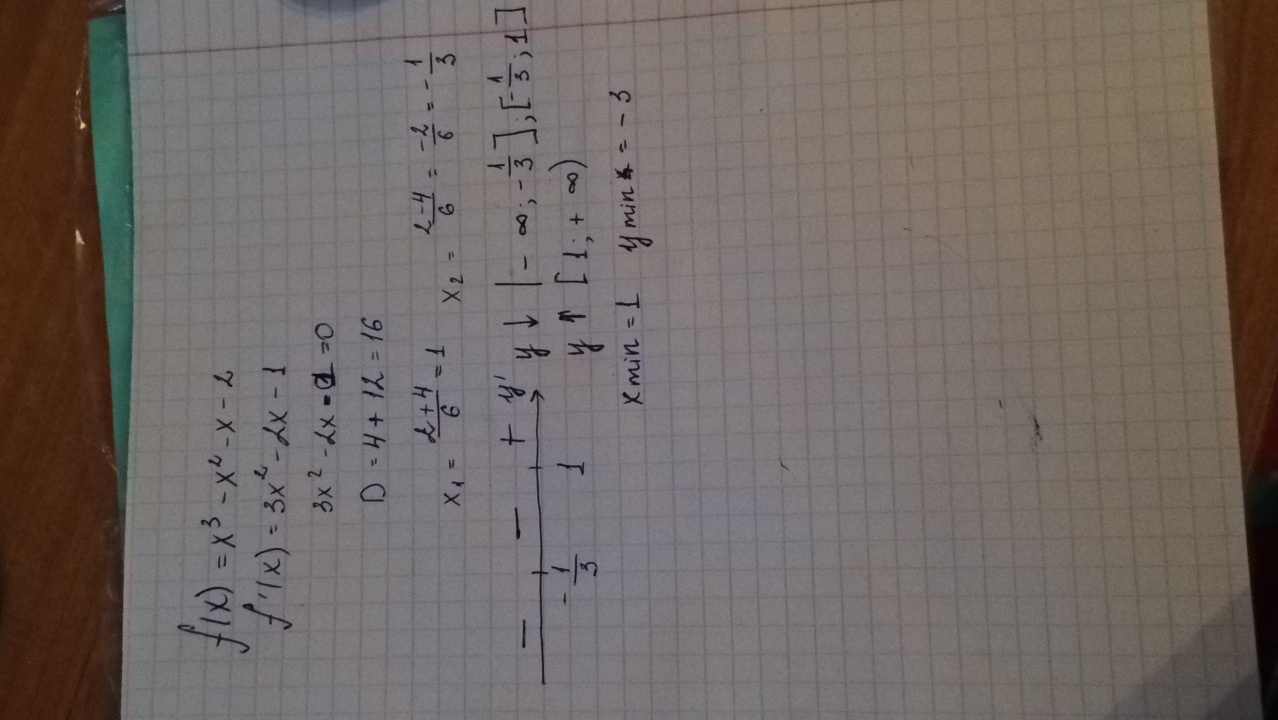 f(x) = x³ - x² - x - 2
f'(x) = 3x² - 2x - 1
3x² - 2x - 1 = 0
D = 4 + 12 = 16
x₁ = (2+4)/6 = 1 x₂ = (2-4)/6 = -2/6 = -1/3
- - + y'
-1/3 1
y ↓ (-∞; -1/3]; [-1/3; 1]
y ↑ [1; +∞)
xmin = 1 ymin = -3